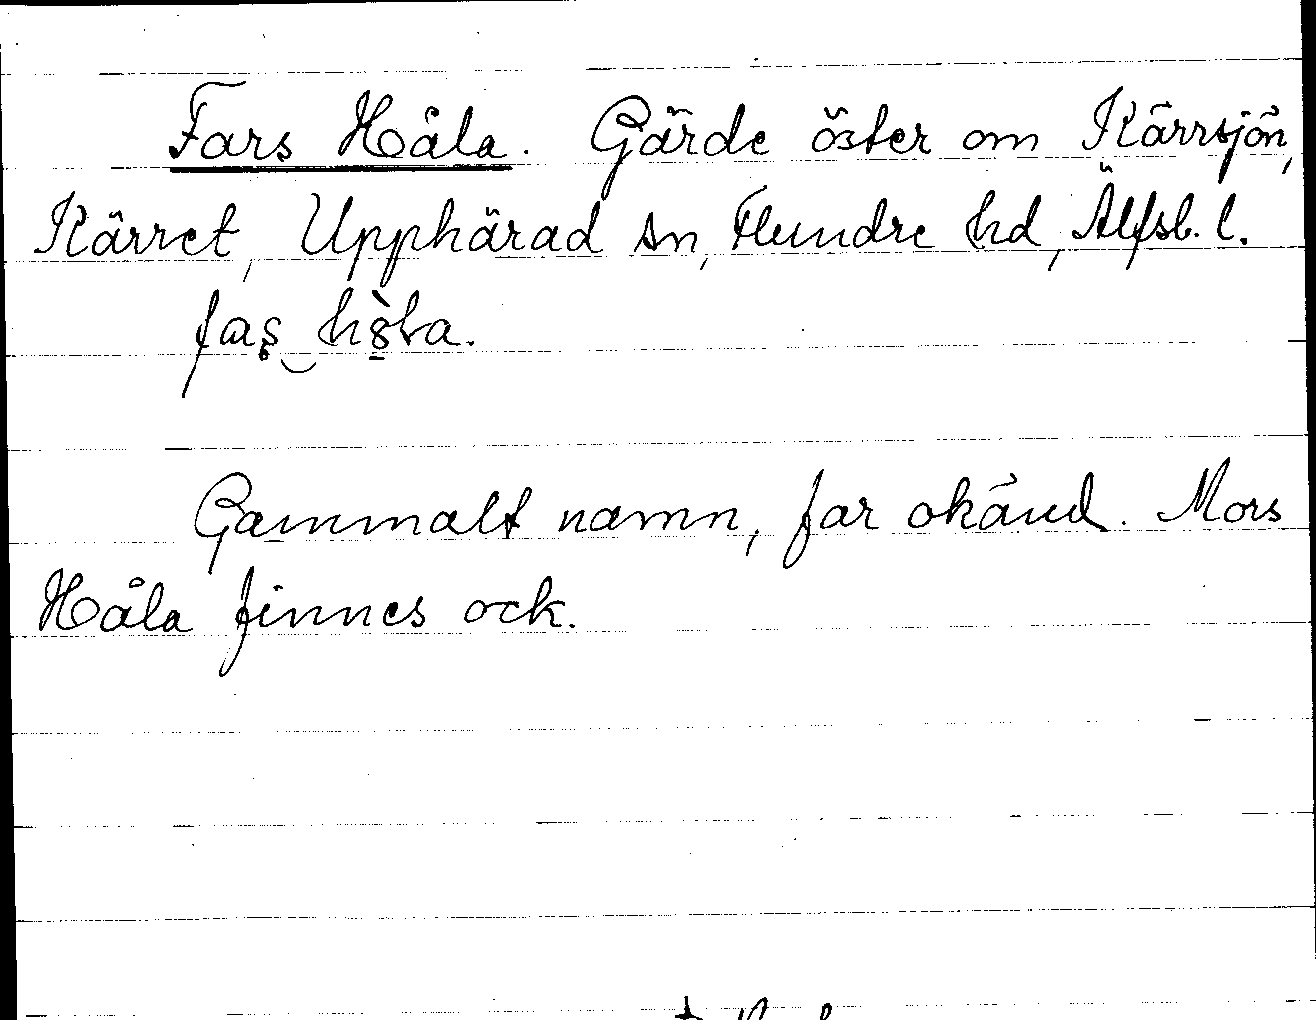 Fars Håla. Gärde öster om Kärrsjön,
Kärret, Upphärad sn, Flundre hd, Älfsb. l.
Gammalt namn, far okänd. Mors
Håla finnes ock.